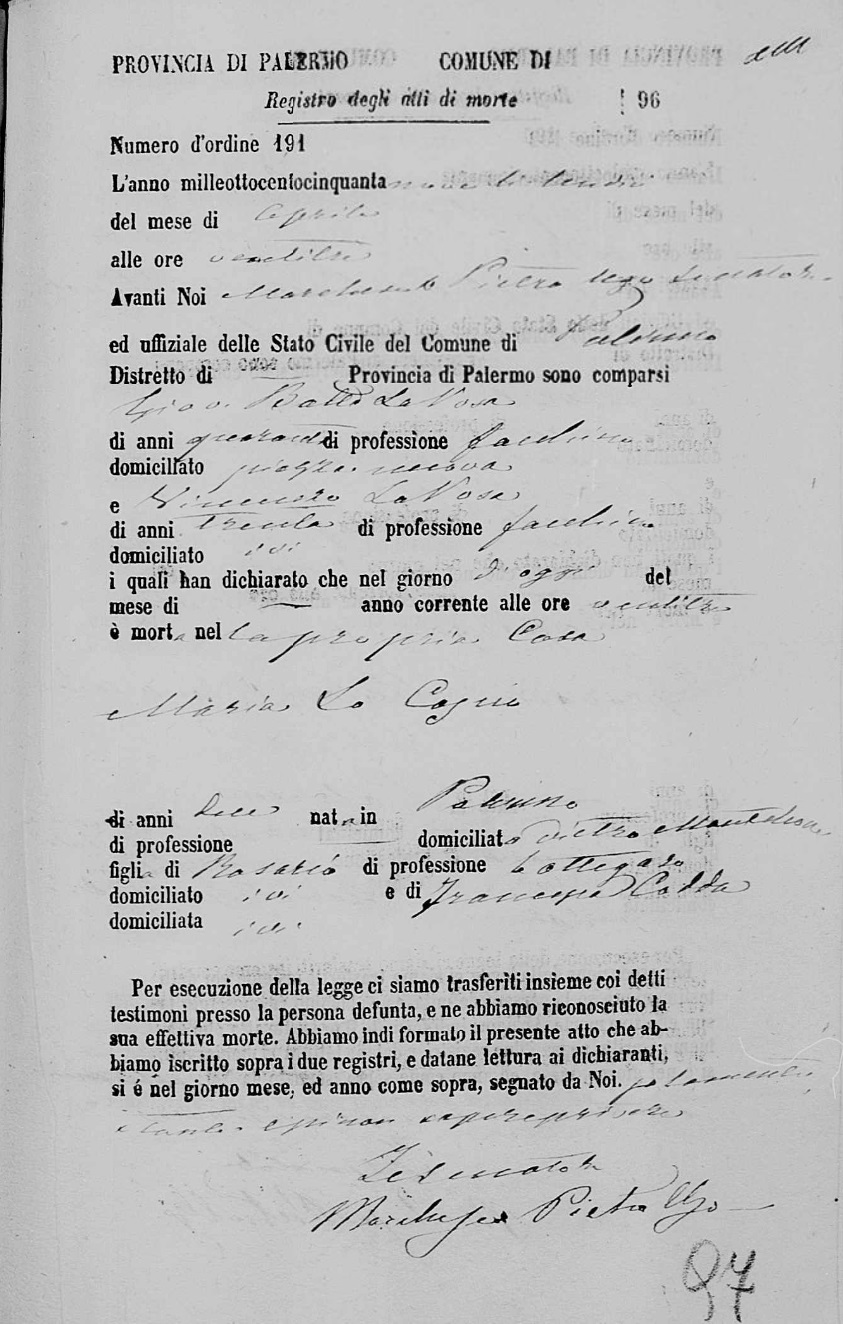 PROVINCIA DI PALERMO COMUNE DI
Registro degli atti di morte 96
Numero d'ordine 191
L'anno milleottocentocinquanta nove li
del mese di Aprile
alle ore ventitre
Avanti Noi Marchese Pietro Ugo Senatore
ed uffiziale delle Stato Civile del Comune di Palermo
Distretto di — Provincia di Palermo sono comparsi
Giov. Batta La Vosa
di anni quaranta di professione facchino
domiciliato piazza nuova
e Vincenzo La Vosa
di anni trenta di professione facchino
domiciliato ivi
i quali han dichiarato che nel giorno d'oggi del
mese di — anno corrente alle ore ventitre
è morta nel la propria Casa
Maria Lo Cognio
di anni nata in Palermo
di professione — domiciliata
figlia di Rosario di professione bottegaro
domiciliato ivi e di Francesca Codda
domiciliata ivi
Per esecuzione della legge ci siamo trasferiti insieme coi detti
testimoni presso la persona defunta, e ne abbiamo riconosciuto la
sua effettiva morte. Abbiamo indi formato il presente atto che ab-
biamo iscritto sopra i due registri, e datane lettura ai dichiaranti,
si é nel giorno mese, ed anno come sopra, segnato da Noi. solamente
Il Senatore
Marchese Pietro Ugo
97